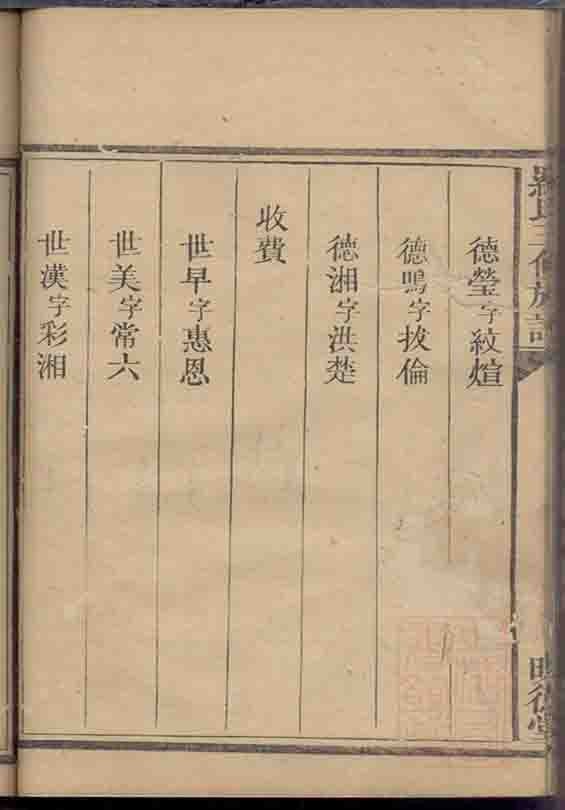 德瑩字紋煊
德鳴字拔倫
德湘字洪楚
收費
世早字惠恩
世美字常六
世漢字彩湘
氏三修族譜